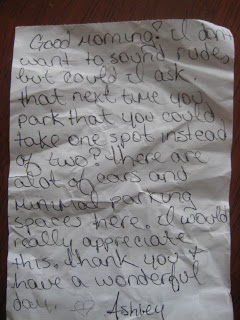 Good Morning! I don't
want to sound rude,
but could I ask
that next time you
park that you could
take one spot instead
of two? There are
alot of cars and
minimal parking
spaces here. I would
really appreciate
this. Thank you &
have a wonderful
day. ♡ Ashley